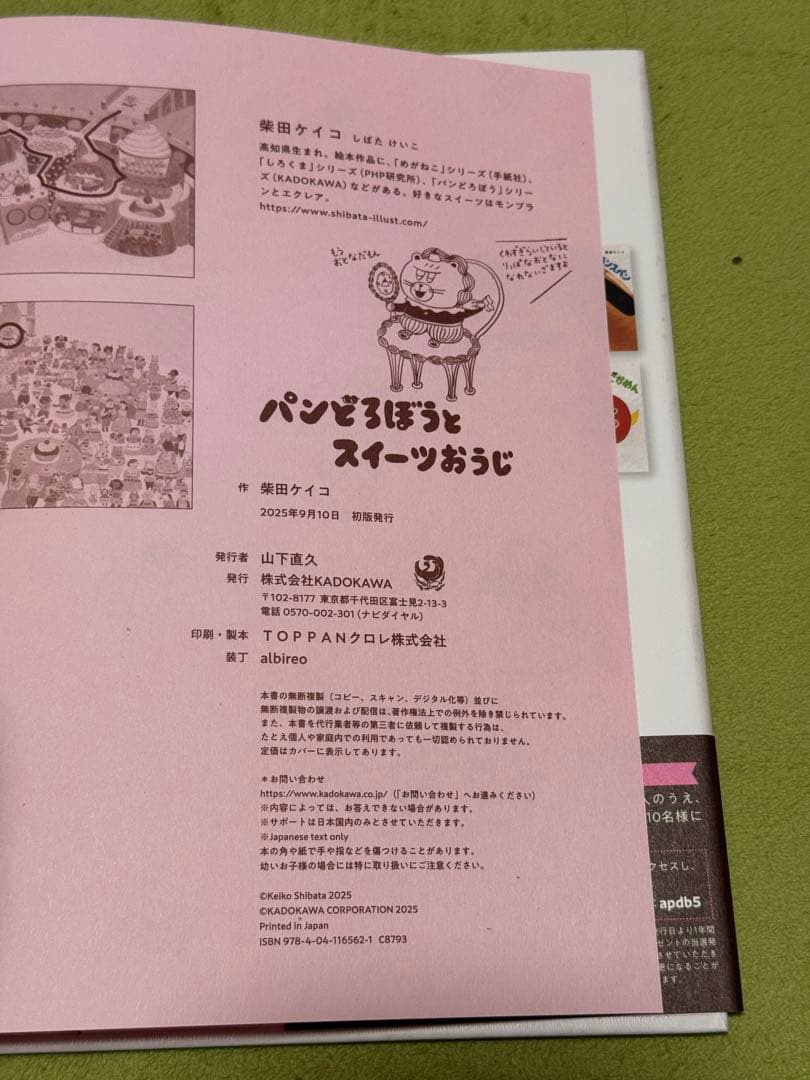 柴田ケイコ しばた けいこ
高知県生まれ。絵本作品に、「めがねこ」シリーズ（手紙社）、
「しろくま」シリーズ（PHP研究所）、「パンどろぼう」シリー
ズ（KADOKAWA）などがある。好きなスイーツはモンブラ
ンとエクレア。
https://www.shibata-illust.com/
もう
おとなだもん
くわずぎらいしていると
りっぱなおとなに
なれないざますよ
パンどろぼうと
スイーツおうじ
作 柴田ケイコ
2025年9月10日 初版発行
発行者 山下直久
発行 株式会社KADOKAWA
〒102-8177 東京都千代田区富士見2-13-3
電話 0570-002-301（ナビダイヤル）
印刷・製本 TOPPANクロレ株式会社
装丁 albireo
本書の無断複製（コピー、スキャン、デジタル化等）並びに
無断複製物の譲渡および配信は、著作権法上での例外を除き禁じられています。
また、本書を代行業者等の第三者に依頼して複製する行為は、
たとえ個人や家庭内での利用であっても一切認められておりません。
定価はカバーに表示してあります。
＊お問い合わせ
https://www.kadokawa.co.jp/（「お問い合わせ」へお進みください）
※内容によっては、お答えできない場合があります。
※サポートは日本国内のみとさせていただきます。
※Japanese text only
本の角や紙で手や指などを傷つけることがあります。
幼いお子様の場合には特に取り扱いにご注意ください。
©Keiko Shibata 2025
©KADOKAWA CORPORATION 2025
Printed in Japan
ISBN 978-4-04-116562-1 C8793
ンスパン
かめん
のうえ、
10名様に
クセスし、
apdb5
行日より1年間
ゼントの当選発
させていただき
更になることが
ます。